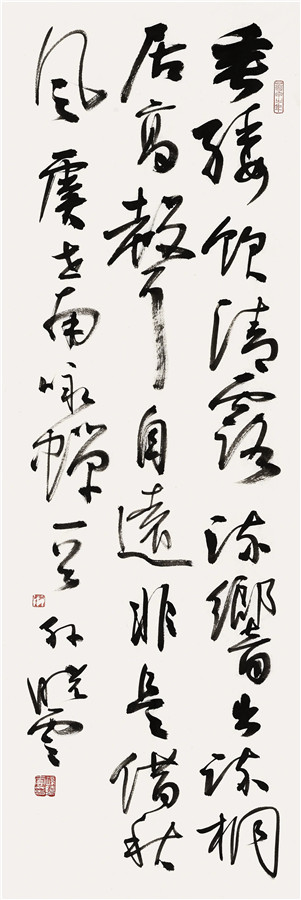 垂緌飲清露流響出疏桐
居高聲自遠非是借秋
風虞世南咏蟬一首孫曉雲